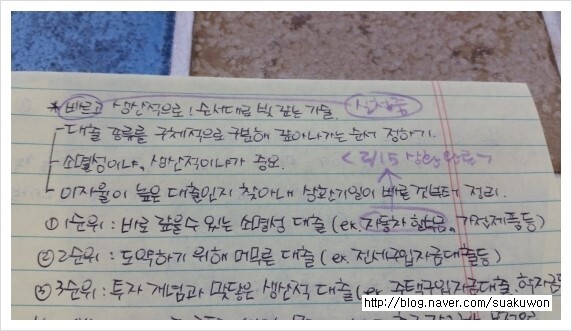 * 바르고 생산적으로! 순서대로 빚 갚는 기술. 실천중
대출 종류를 구체적으로 구분해 갚아나가는 순서 정하기.
소멸성이냐, 생산적이냐가 중요. < 2/15 상환완료 >
이자율이 높은 대출인지 찾아내 상환기일이 빠른 것부터 정리.
① 1순위 : 바로 갚을 수 있는 소멸성 대출 (ex. 자동차 할부금, 가전제품등)
② 2순위 : 도약하기 위해 머무른 대출 (ex. 전세구입자금대출등)
③ 3순위 : 투자 개념과 맞닿은 생산적 대출 (ex. 주택구입자금대출, 학자금
http://blog.naver.com/suakuwon